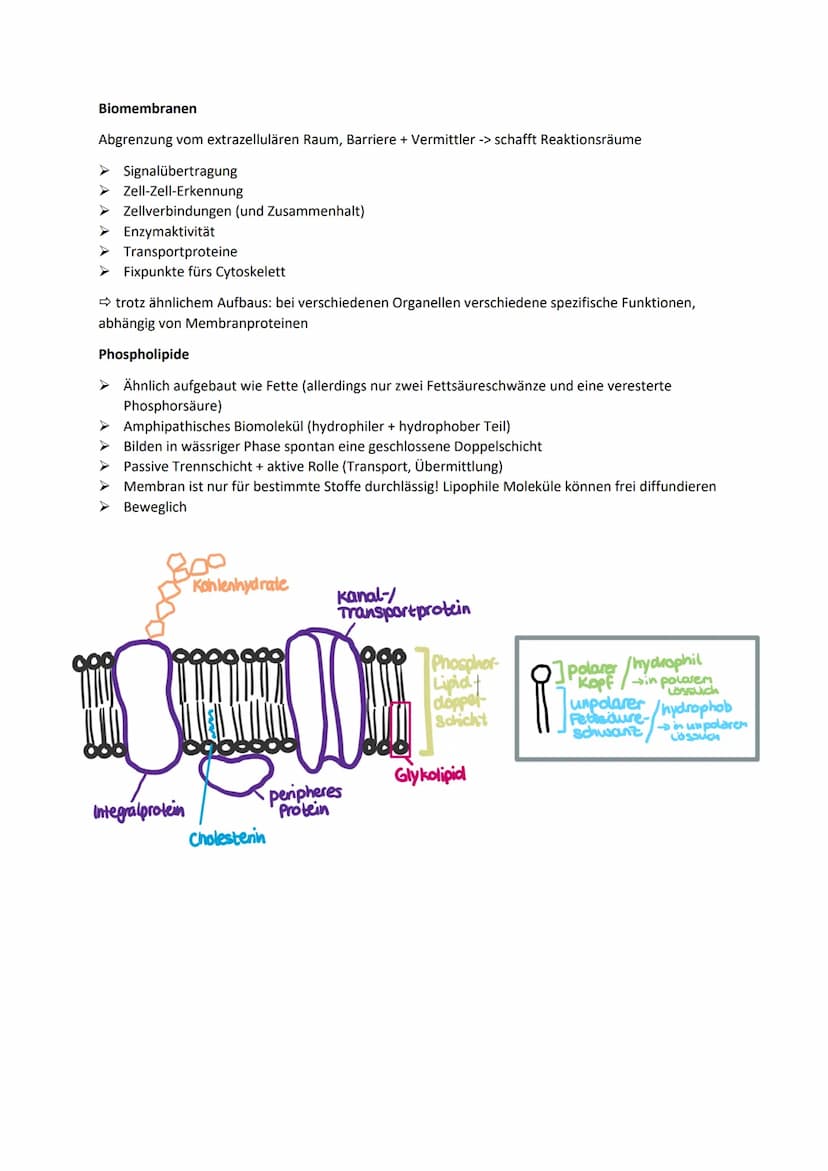 Biomembranen
Abgrenzung vom extrazellulären Raum, Barriere + Vermittler -> schafft Reaktionsräume
➢ Signalübertragung
➢ Zell-Zell-Erkennung
➢ Zellverbindungen (und Zusammenhalt)
➢ Enzymaktivität
➢ Transportproteine
➢ Fixpunkte fürs Cytoskelett
⇨ trotz ähnlichem Aufbaus: bei verschiedenen Organellen verschiedene spezifische Funktionen,
abhängig von Membranproteinen
Phospholipide
➢ Ähnlich aufgebaut wie Fette (allerdings nur zwei Fettsäureschwänze und eine veresterte
Phosphorsäure)
➢ Amphipathisches Biomolekül (hydrophiler + hydrophober Teil)
➢ Bilden in wässriger Phase spontan eine geschlossene Doppelschicht
➢ Passive Trennschicht + aktive Rolle (Transport, Übermittlung)
➢ Membran ist nur für bestimmte Stoffe durchlässig! Lipophile Moleküle können frei diffundieren
➢ Beweglich
Kohlenhydrate
Kanal-/
Transportprotein
Phospho-
Lipid-
doppel-
schicht
Glykolipid
Integralprotein
peripheres
Protein
Cholesterin
polarer / hydrophil
Kopf → in polarem
löslich
unpolarer / hydrophob
Fettsäure- → in unpolarem
schwanz löslich